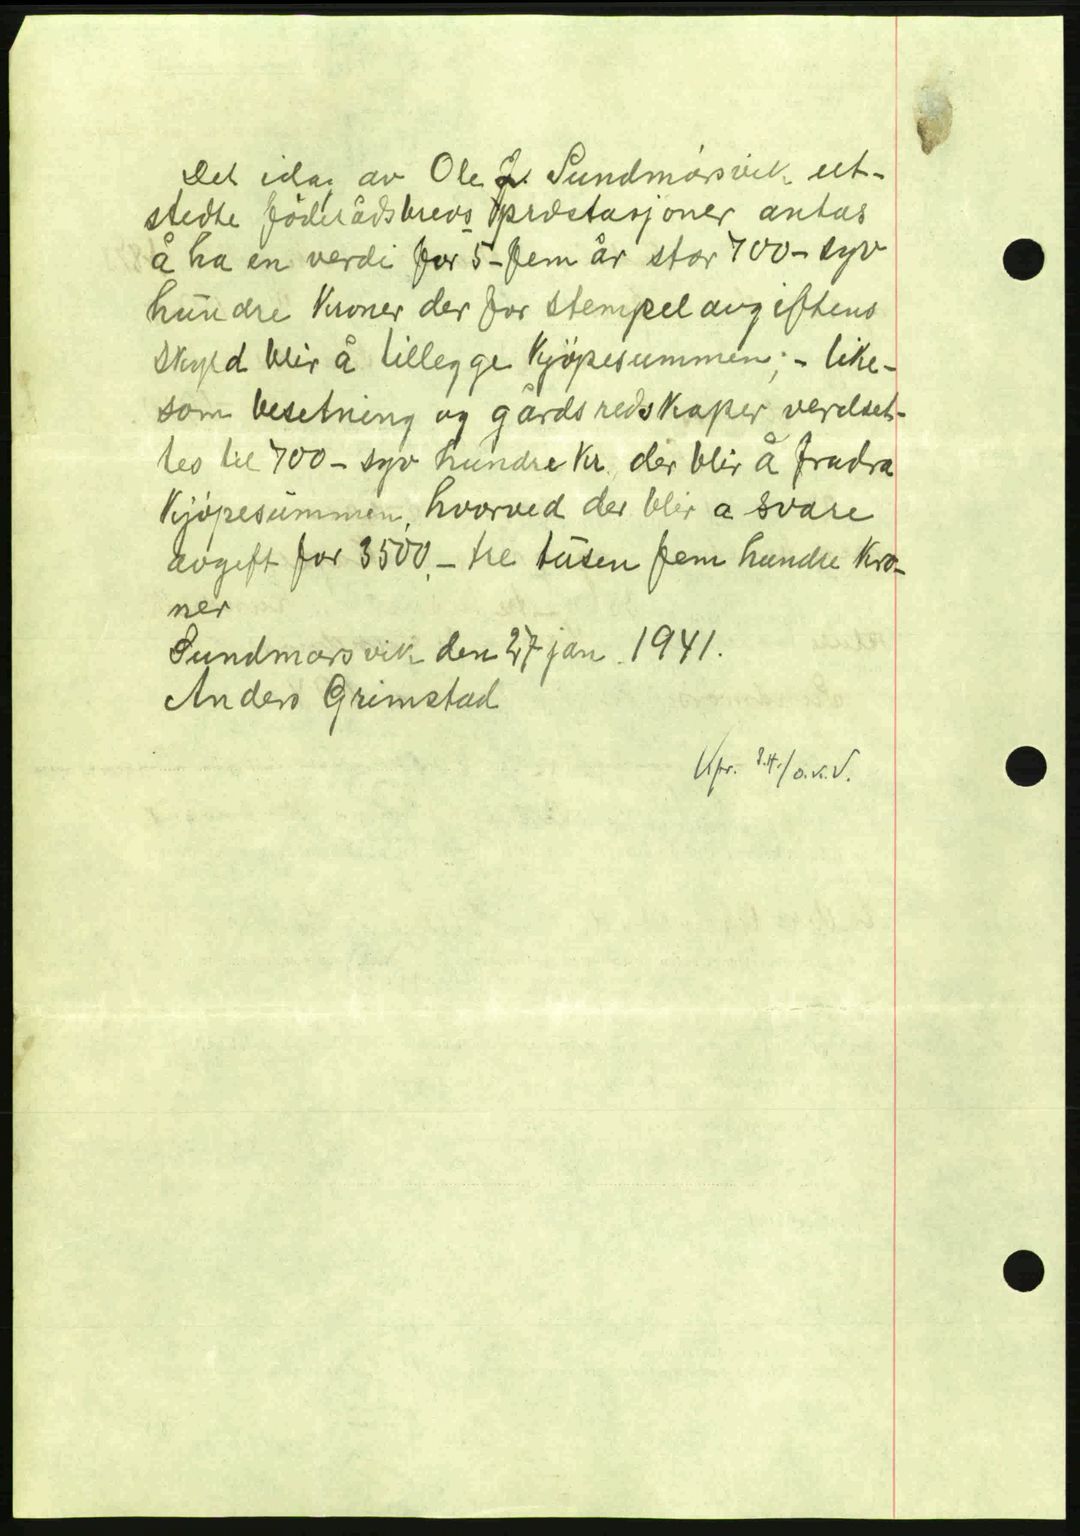 Det idag av Ole J. Sundmorsvik ut-
stedte föderådsbrevs præstasjoner antas
å ha en verdi for 5 - fem år stor 700 - syv
hundre Kroner der for stempelavgiftens
skyld blir å tillegge Kjöpesummen; - like-
som besetning og gårdsredskaper verdset-
tes til 700 - syv hundre Kr. der blir å fradra
Kjöpesummen, hvorved der blir a svare
avgift for 3500,- tre tusen fem hundre Kro-
ner
Sundmorsvik den 27 jan. 1941.
Anders Grimstad
Kfr. /o.k.V.